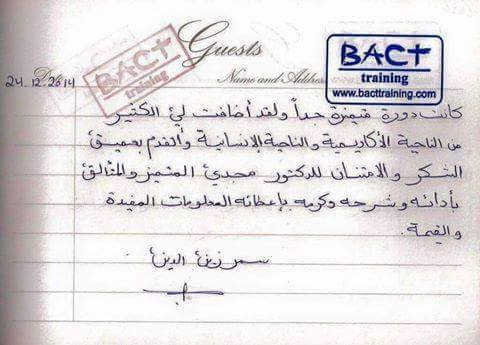 Guests
BACT
training
www.bacttraining.com
BACT
training
Date
24.12.2014
Name and Address
كانت دورة متميزة جداً ولقد أضافت لي الكثير
من الناحية الأكاديمية والناحية الإنسانية وأتقدم بعميق
الشكر والامتنان للدكتور مجدي المتميز والمتألق
بأدائه وشرحه وكرمه بإعطائه المعلومات المفيدة
والقيمة.
سمر زين الدين